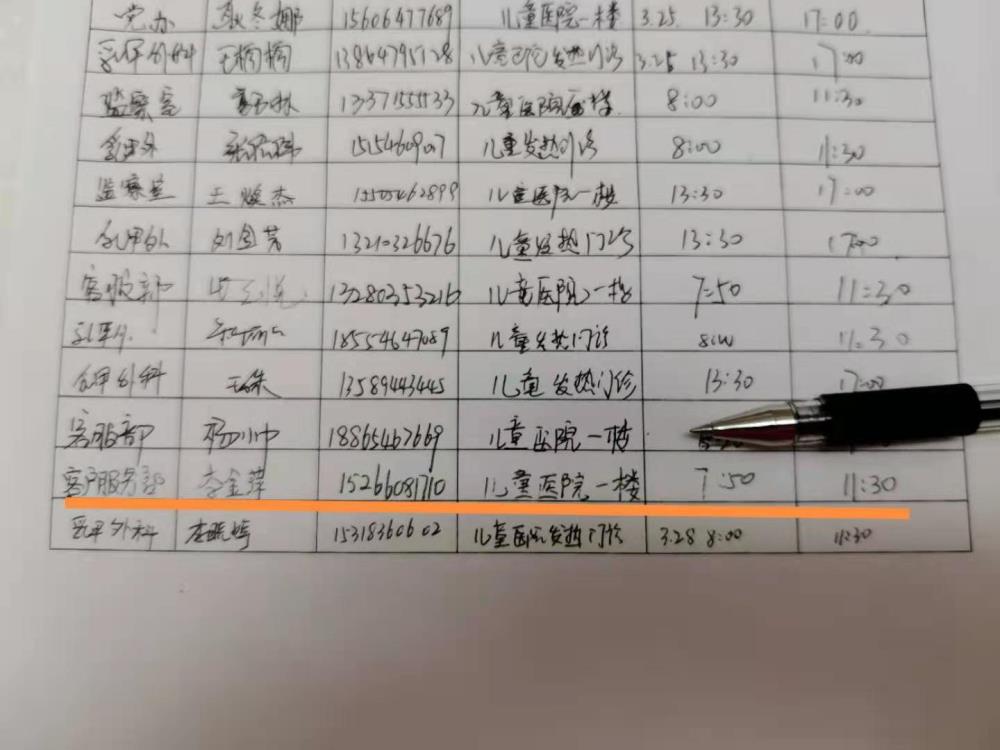 党办 耿冬娜 15606477689 儿童医院一楼 3.25 13:30 17:00
乳甲外科 王楠楠 13864795128 儿童医院发热门诊 3.25 13:30 17:00
监察室 13371555533 儿童医院 楼 8:00 11:30
乳甲外 15154609007 儿童发热门诊 8:00 11:30
监察室 王焕杰 15505462899 儿童医院一楼 13:30 17:00
乳甲外 13210326676 儿童发热门诊 13:30 17:00
客服部 13280353216 儿童医院一楼 7:50 11:30
乳甲外 18554647089 儿童发热门诊 8:00 11:30
乳甲外科 王姝 13589443445 儿童发热门诊 13:30 17:00
客服部 杨小巾 18865467669 儿童医院一楼
客户服务部 李金萍 15266081710 儿童医院一楼 7:50 11:30
乳甲外科 15318360602 儿童医院发热门诊 3.28 8:00 11:30